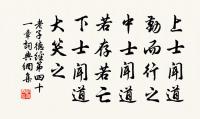 上士聞道
勤而行之
中士聞道
若存若亡
下士聞道
大笑之
老子德經第四十
一章詞典網集